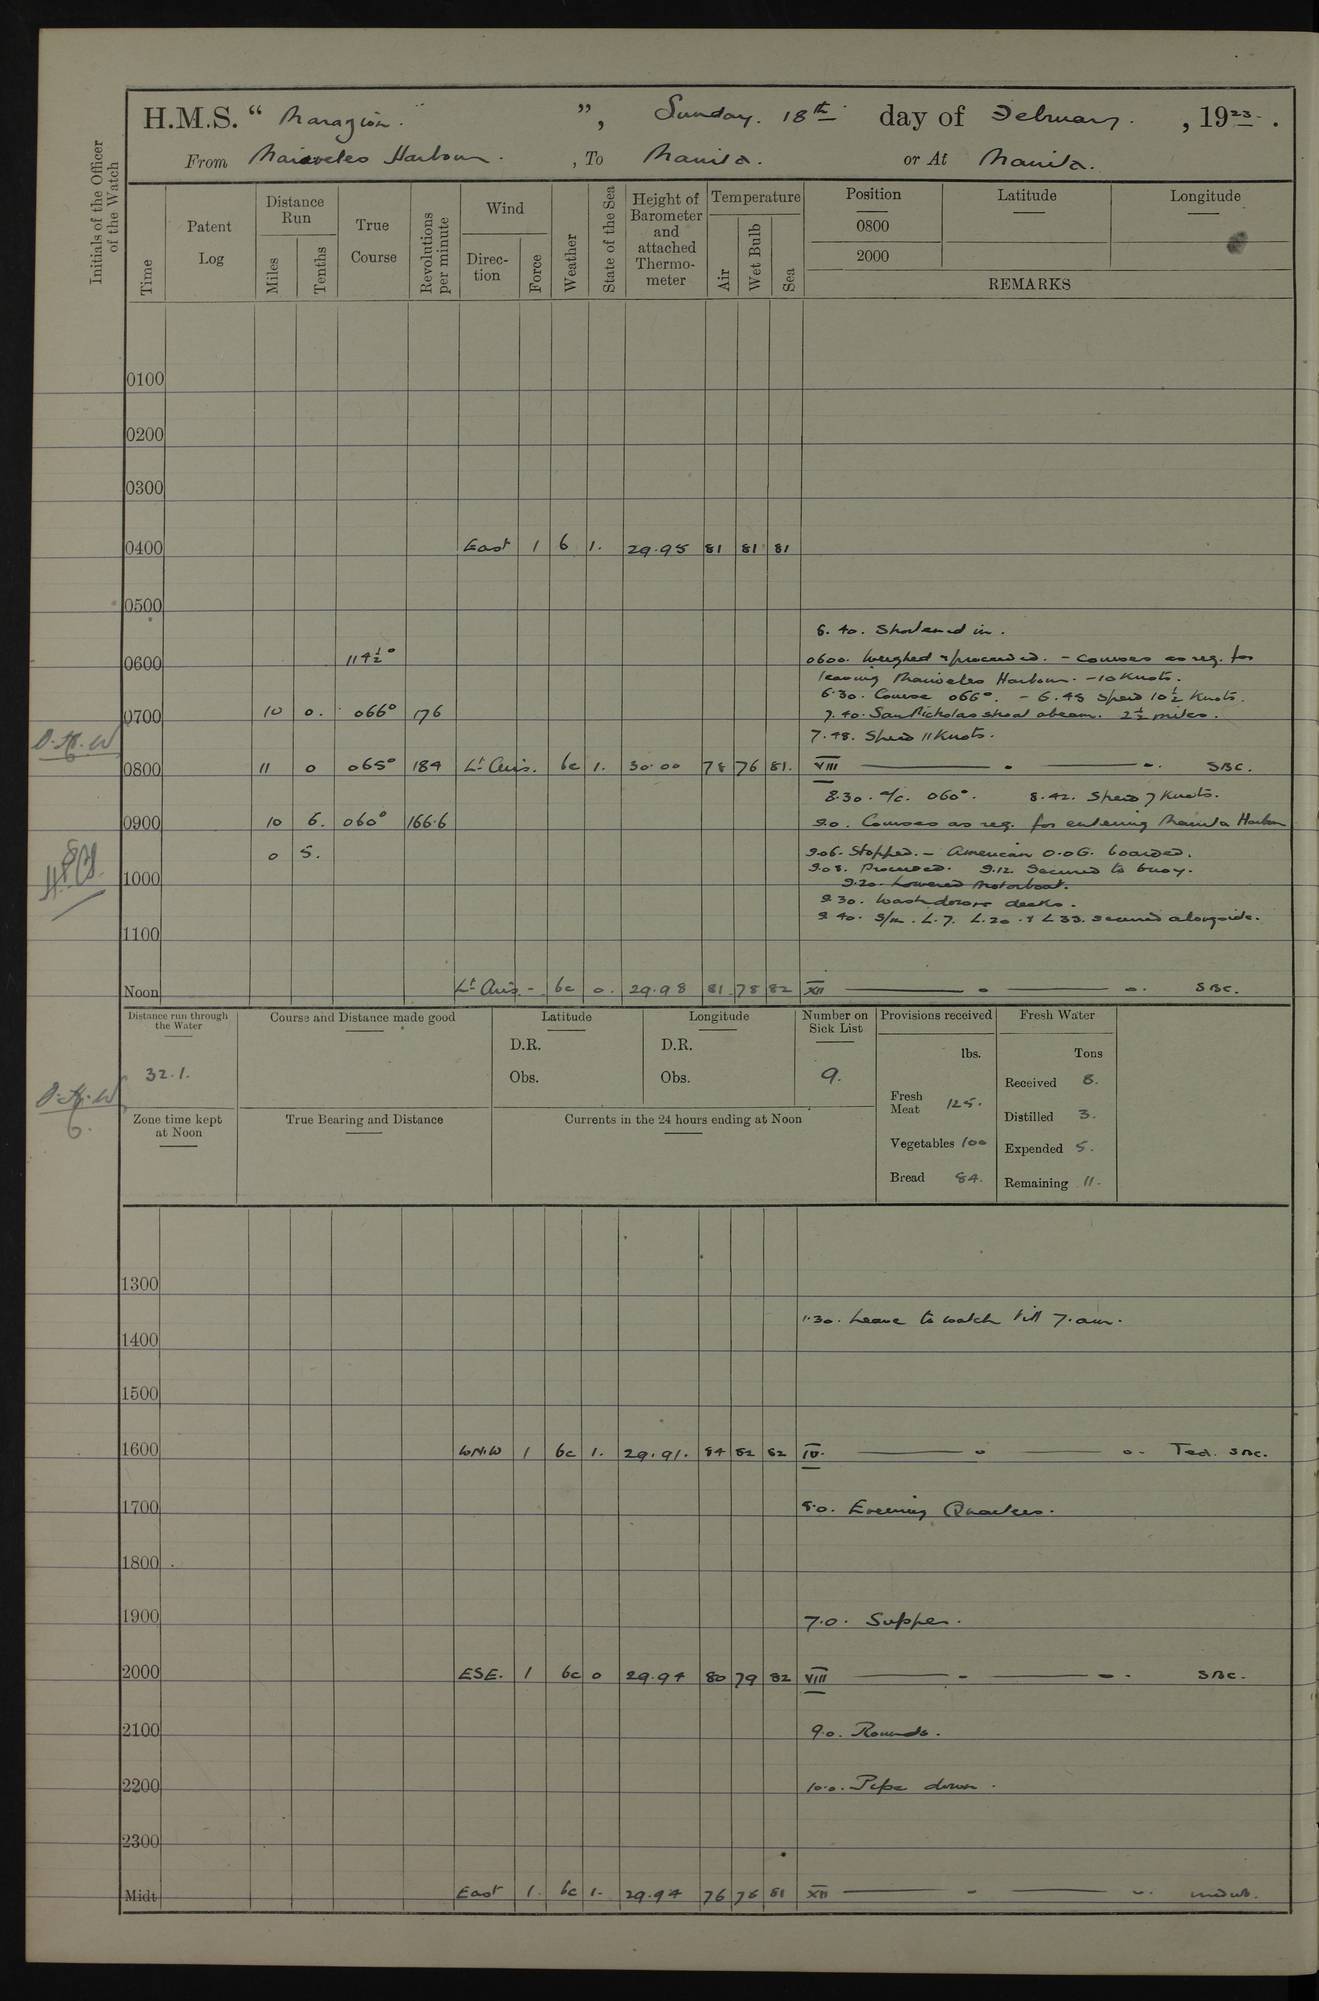 H.M.S. " Marazion. ", Sunday. 18th day of February. , 1923.
From Mariveles Harbour. , To Manila. or At Manila.
Initials of the Officer of the Watch
Time
Patent Log
Distance Run
Miles
Tenths
True Course
Revolutions per minute
Wind
Direc-tion
Force
Weather
State of the Sea
Height of Barometer and attached Thermo-meter
Temperature
Air
Wet Bulb
Sea
Position
0800
2000
Latitude
Longitude
REMARKS
0100
0200
0300
0400 East 1 b 1. 29.95 81 81 81
0500
5.40. Shortened in.
0600 114½° 0600. Weighed & proceeded. - Courses as req. for
leaving Mariveles Harbour. - 10 Knots.
6.30. Course 066°. - 6.45 Speed 10½ Knots.
0700 10 0. 066° 176 7.40. San Nicholas shoal abeam. 2½ miles.
7.48. Speed 11 Knots.
0800 11 0 065° 184 Lt Airs. bc 1. 30.00 78 76 81. VIII SBC.
8.30. a/c. 060°. 8.42. Speed 7 Knots.
0900 10 6. 060° 166.6 9.0. Courses as req. for entering Manila Harbour
0 5. 9.06. Stopped. - American O.O.G. boarded.
9.08. Proceeded. 9.12. Secured to buoy.
1000 9.20. Lowered Motorboat.
9.30. Wash down decks.
9.40. S/m. L.7. L.20. & L33. secured alongside.
1100
Noon Lt Airs. - bc 0. 29.98 81 78 82 XII SBC.
Distance run through the Water
32.1.
Zone time kept at Noon
Course and Distance made good
True Bearing and Distance
Latitude
D.R.
Obs.
Longitude
D.R.
Obs.
Currents in the 24 hours ending at Noon
Number on Sick List
9.
Provisions received
lbs.
Fresh Meat 125.
Vegetables 100
Bread 84.
Fresh Water
Tons
Received 8.
Distilled 3.
Expended 5.
Remaining 11.
1300
1.30. Leave to watch till 7.am.
1400
1500
1600 WNW 1 bc 1. 29.91. 84 82 82 IV. Ted. SBC.
1700 5.0. Evening Quarters.
1800
1900 7.0. Supper.
2000 ESE. 1 bc 0 29.94 80 79 82 VIII SBC.
2100 9.0. Rounds.
2200 10.0. Pipe down.
2300
Midt East 1. bc 1. 29.94 76 76 81 XII